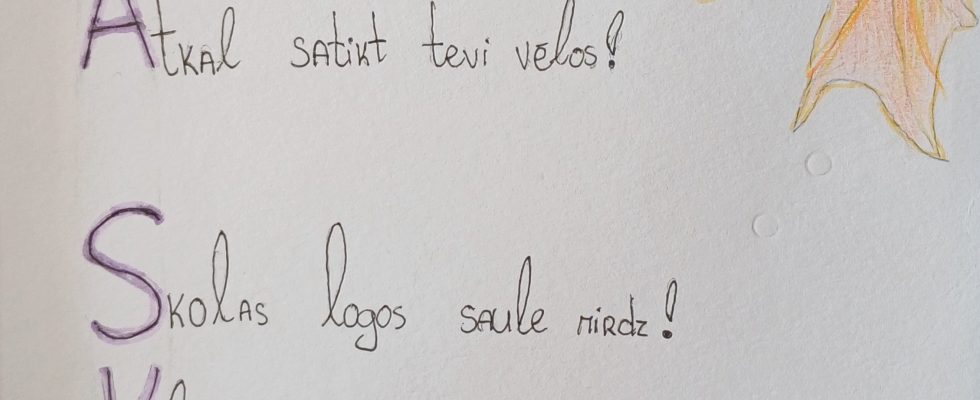 Atkal satikt tevi vēlos!
Skolas logos saule mirdz!